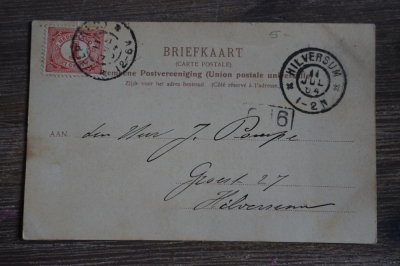 5-
BRIEFKAART
(CARTE POSTALE)
Algemeene Postvereeniging (Union postale universelle)
Zijde voor het adres bestemd. (Côté réservé à l'adresse.)
HILVERSUM
11
JUL
04
1-2N
6
AAN den Heer J. Pompe
Groest 27
Hilversum